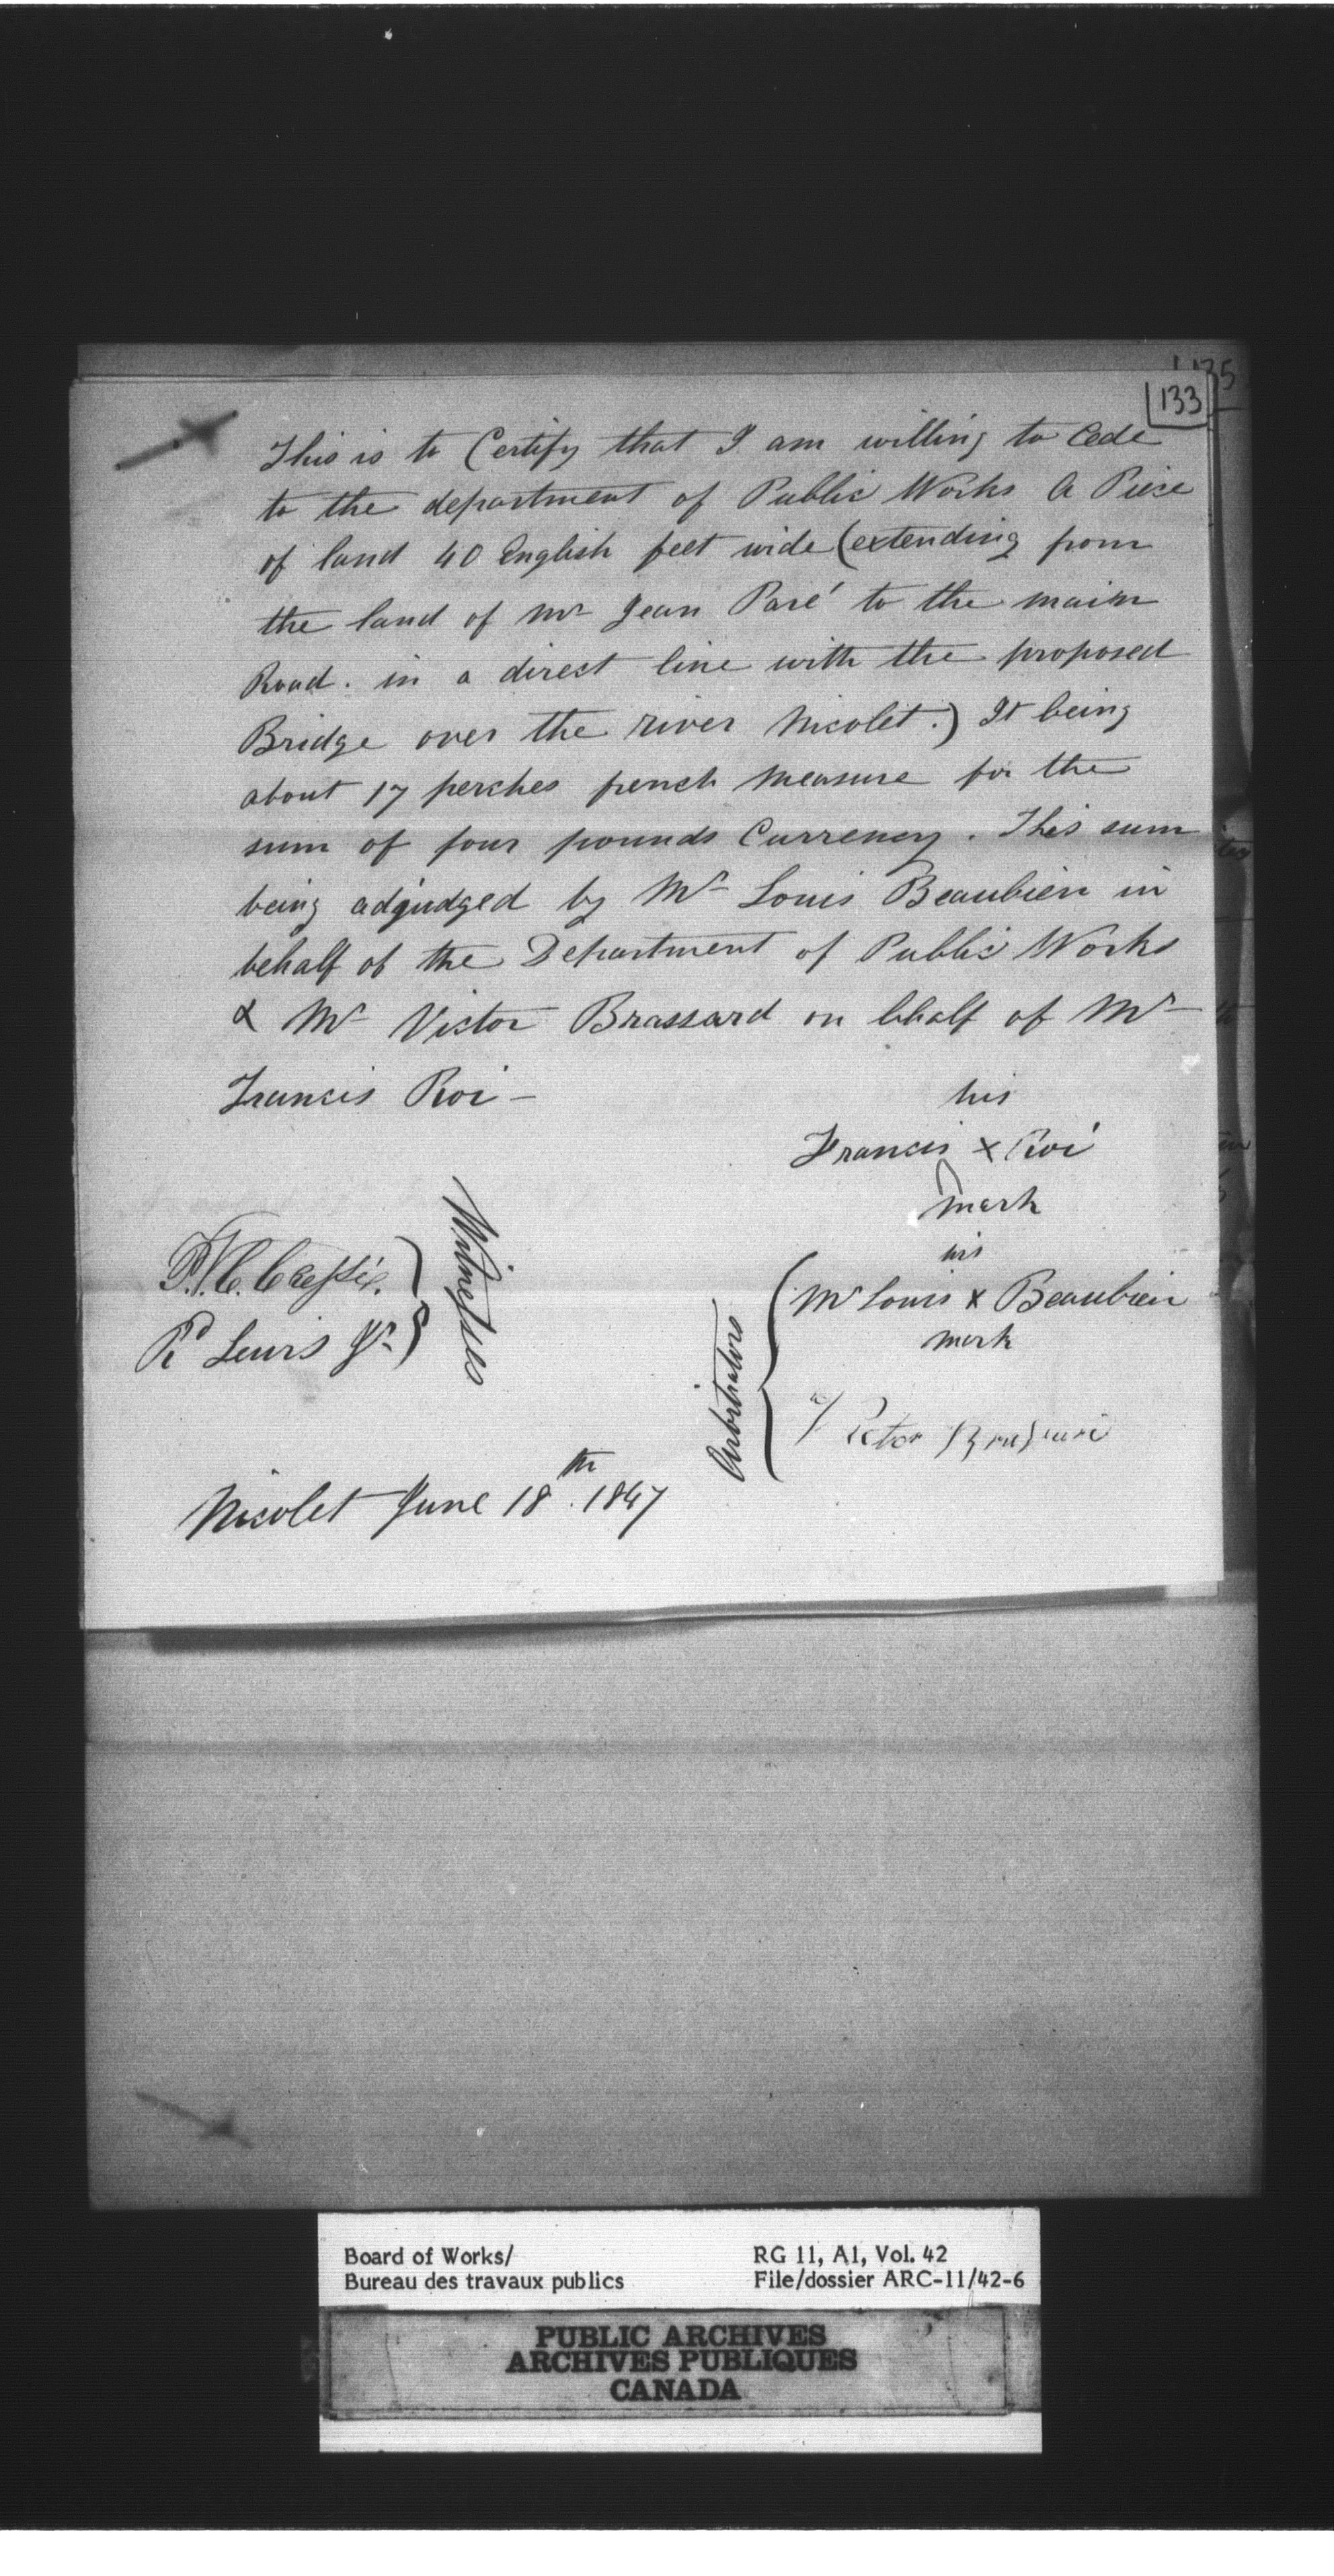 135
133
This is to Certify that I am willing to Cede
to the department of Public Works A Piece
of land 40 English feet wide (extending from
the land of Mr Jean Paré to the main
Road. in a direct line with the proposed
Bridge over the river Nicolet.) It being
about 17 perches french measure for the
sum of four pounds Currency. This sum
being adjudged by Mr Louis Beaubien in
behalf of the Department of Public Works
& Mr Victor Brassard on behalf of Mr
Francis Roi -
his
Francis x Roi
mark
Witnesses
R Lewis Jr
Arbitrators
his
Mr Louis x Beaubien
mark
Nicolet June 18th. 1847
Board of Works/
Bureau des travaux publics
RG 11, A1, Vol. 42
File/dossier ARC-11/42-6
PUBLIC ARCHIVES
ARCHIVES PUBLIQUES
CANADA